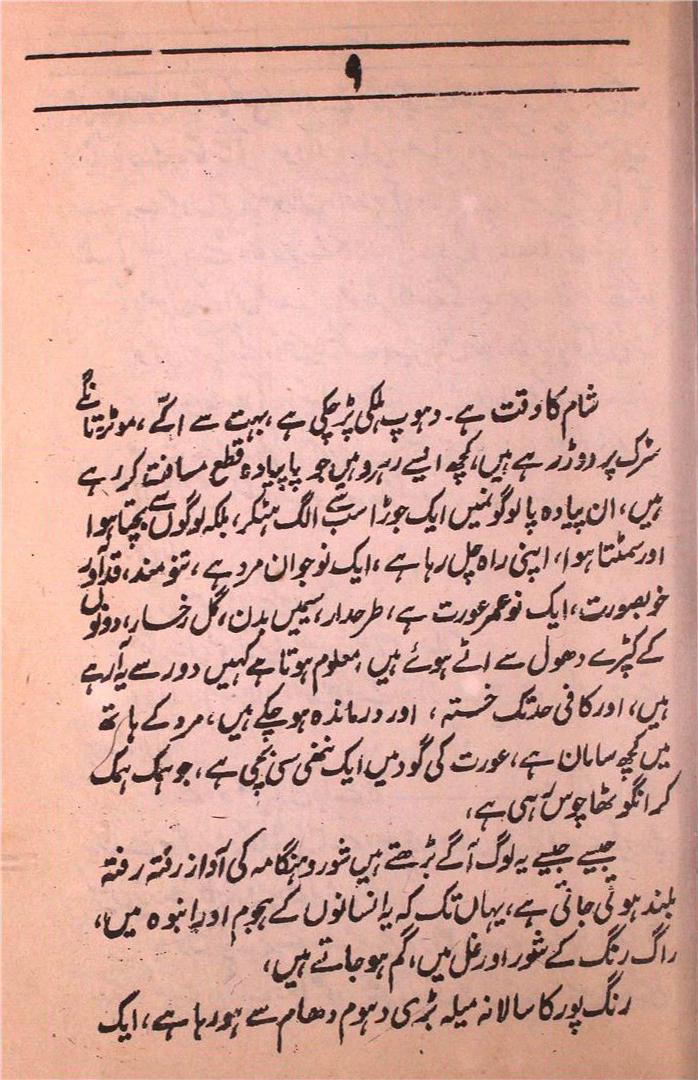 ۹
شام کا وقت ہے۔ دھوپ ہلکی پڑ چکی ہے، بہت سے اکّے، موٹر، تانگے
سڑک پر دوڑ رہے ہیں، کچھ ایسے رہرو ہیں جو پا پیادہ قطع مسافت کر رہے
ہیں، ان پیادہ پا لوگوں میں ایک جوڑا سب سے الگ ہٹکر، بلکہ لوگوں سے بچتا ہوا
اور سمٹتا ہوا، اپنی راہ چل رہا ہے، ایک نوجوان مرد ہے، تنومند، قدآور
خوبصورت، ایک نوعمر عورت ہے، طرحدار، سیمیں بدن، گل رخسار، دونوں
کے کپڑے دھول سے اٹے ہوئے ہیں، معلوم ہوتا ہے کہیں دور سے یہ آ رہے
ہیں، اور کافی حد تک خستہ، اور درماندہ ہو چکے ہیں، مرد کے ہاتھ
میں کچھ سامان ہے، عورت کی گود میں ایک ننھی سی بچی ہے، جو ہمک ہمک
کر انگوٹھا چوس رہی ہے،
جیسے جیسے یہ لوگ آگے بڑھتے ہیں شور و ہنگامہ کی آواز رفتہ رفتہ
بلند ہوتی جاتی ہے، یہاں تک کہ یہ انسانوں کے ہجوم اور انبوہ میں،
راگ رنگ کے شور اور غل میں، گم ہو جاتے ہیں،
رنگ پور کا سالانہ میلہ بڑی دہوم دھام سے ہو رہا ہے، ایک